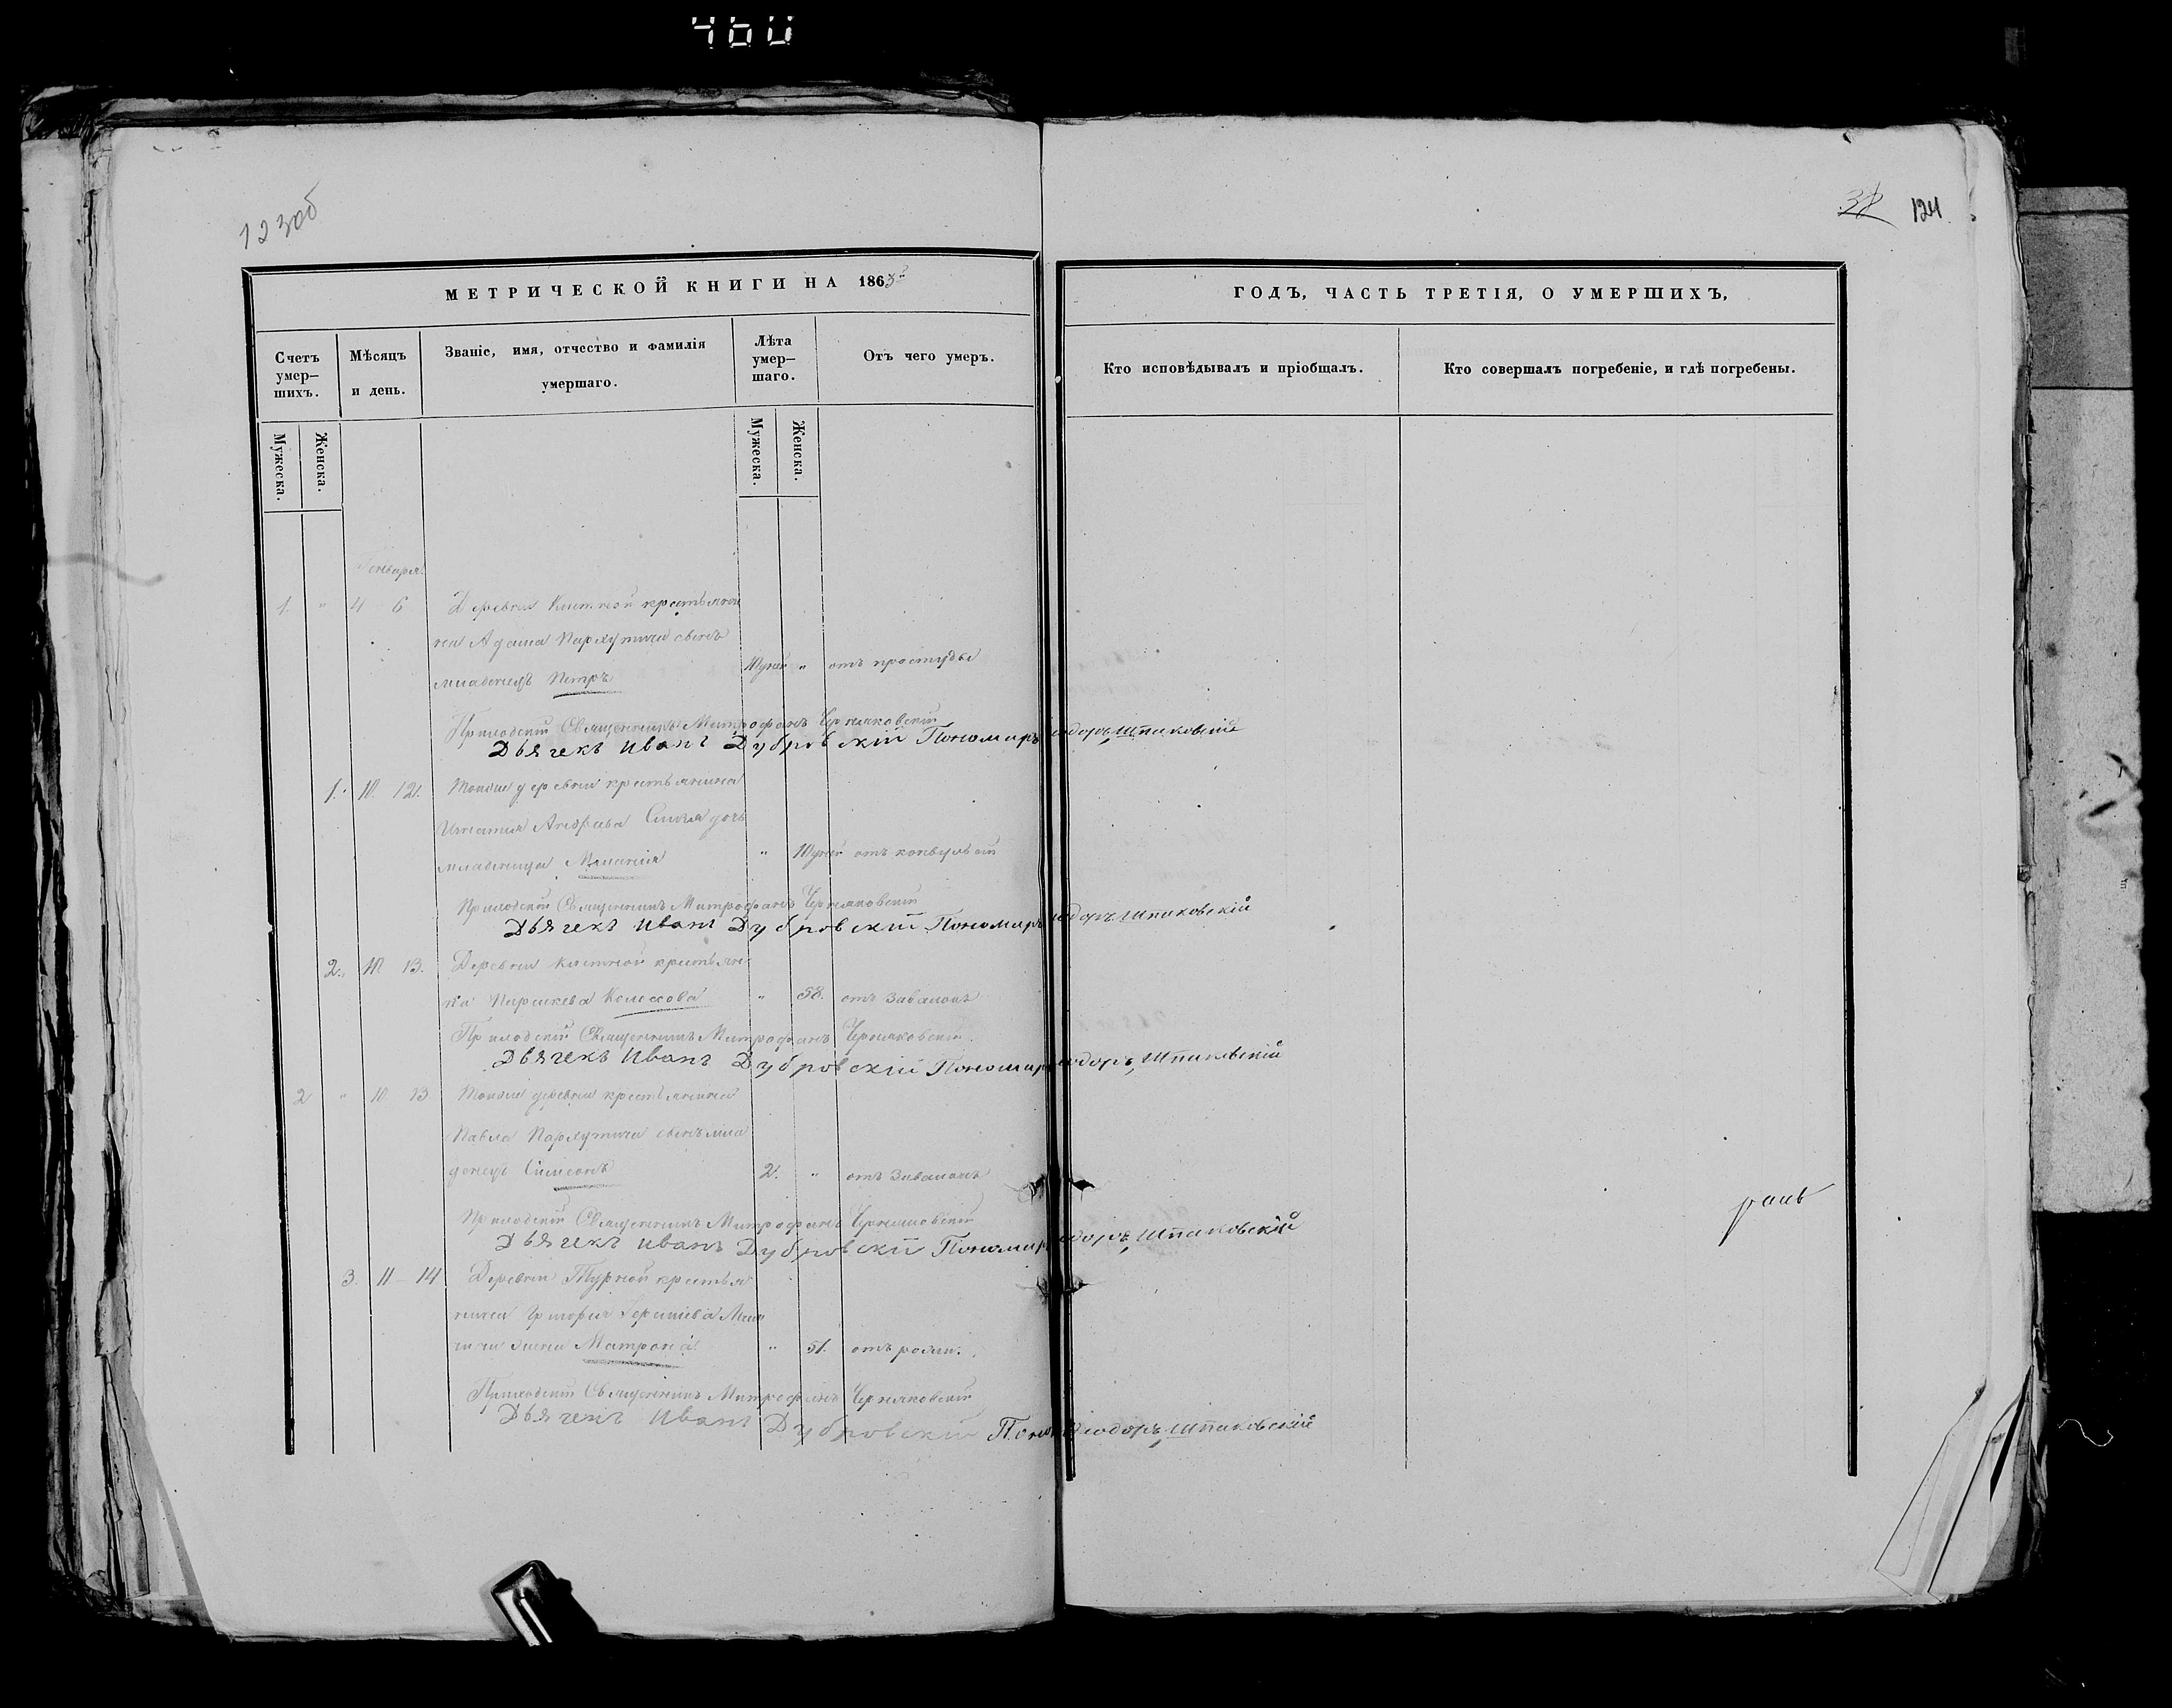 460
123об
38 124
МЕТРИЧЕСКОЙ КНИГИ НА 1863й
ГОДЪ, ЧАСТЬ ТРЕТІЯ, О УМЕРШИХЪ,
Счетъ умер–шихъ.
Мѣсяцъ и день.
Званіе, имя, отчество и фамилія умершаго.
Лѣта умер–шаго.
Отъ чего умеръ.
Кто исповѣдывалъ и пріобщалъ.
Кто совершалъ погребеніе, и гдѣ погребены.
Мужеска.
Женска.
Мужеска.
Женска.
Генваря
1. " 4 6 Деревни крестьяни
на Адама Пархутича сынъ
младенецъ Петръ " отъ простуды
Приходскій Священникъ Митрофанъ Черняковскій
Дьячекъ Иванъ Дубровскій Пономарь Ѳеодоръ Шпаковскій
1. 10. 12. Тойже деревни крестьянина
Игнатія Андреева дочь
младеница Меланія " отъ конвульсій
Приходскій Священникъ Митрофанъ Черняковскій
Дьячекъ Иванъ Дубровскій Пономарь Ѳеодоръ Шпаковскій
2. 10. 13. Деревни крестьян
ка Параскева " 58. отъ
Приходскій Священникъ Митрофанъ Черняковскій
Дьячекъ Иванъ Дубровскій Пономарь Ѳеодоръ Шпаковскій
2 " 10 13 Тойже деревни крестьянина
Павла Пархутича сынъ мла
денецъ Симеонъ 2. " отъ
Приходскій Священникъ Митрофанъ Черняковскій
Дьячекъ Иванъ Дубровскій Пономарь Ѳеодоръ Шпаковскій
3. 11 14 Деревни Турной крестья
нина Григорія
жена Матрона " 51. отъ
Приходскій Священникъ Митрофанъ Черняковскій
Дьячекъ Иванъ Дубровскій Поном Ѳеодоръ Шпаковскій